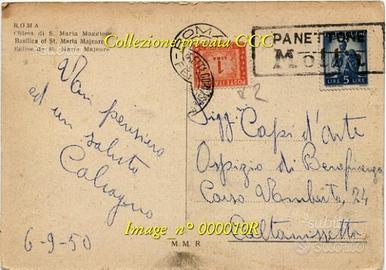 ROMA
Chiesa di S. Maria Maggiore
Basilica of St. Maria Majeure
Eglise de S. Marie Majeure
Collezione privata CGC
ROMA
PANETTONE
LIRE 5 LIRE
Vari pensieri
ed un saluto
Calogero
6-9-50
Sigg Capi d'arte
Ospizio di Beneficenza
Corso Umberto, 24
Caltanissetta
Image_n° 000010R
M. M. R
subito